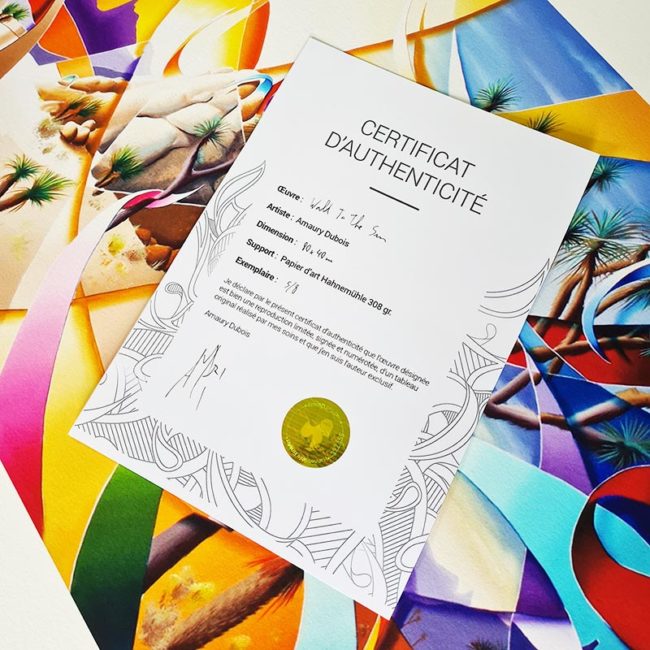 CERTIFICAT
D'AUTHENTICITÉ
Œuvre : Walk To The Sun
Artiste : Amaury Dubois
Dimension : 80x40cm
Support : Papier d'art Hahnemühle 308 gr.
Exemplaire : 5/8
Je déclare par le présent certificat d'authenticité que l'œuvre désignée
est bien une reproduction limitée, signée et numérotée, d'un tableau
original réalisé par mes soins et que j'en suis l'auteur exclusif
Amaury Dubois